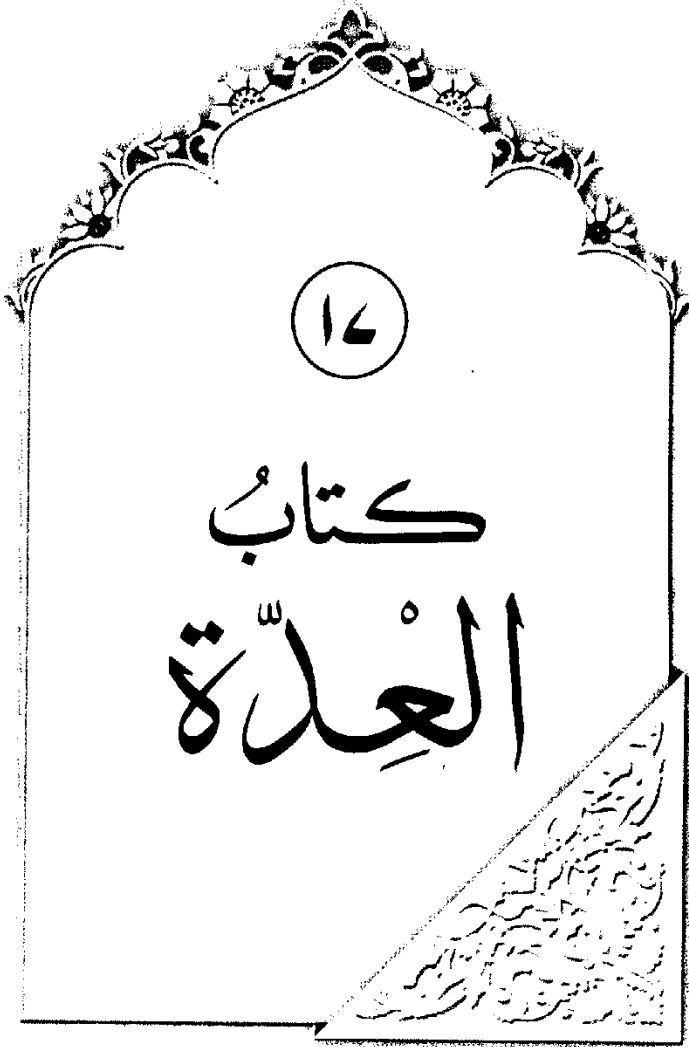 كتابُ
العِدّْة